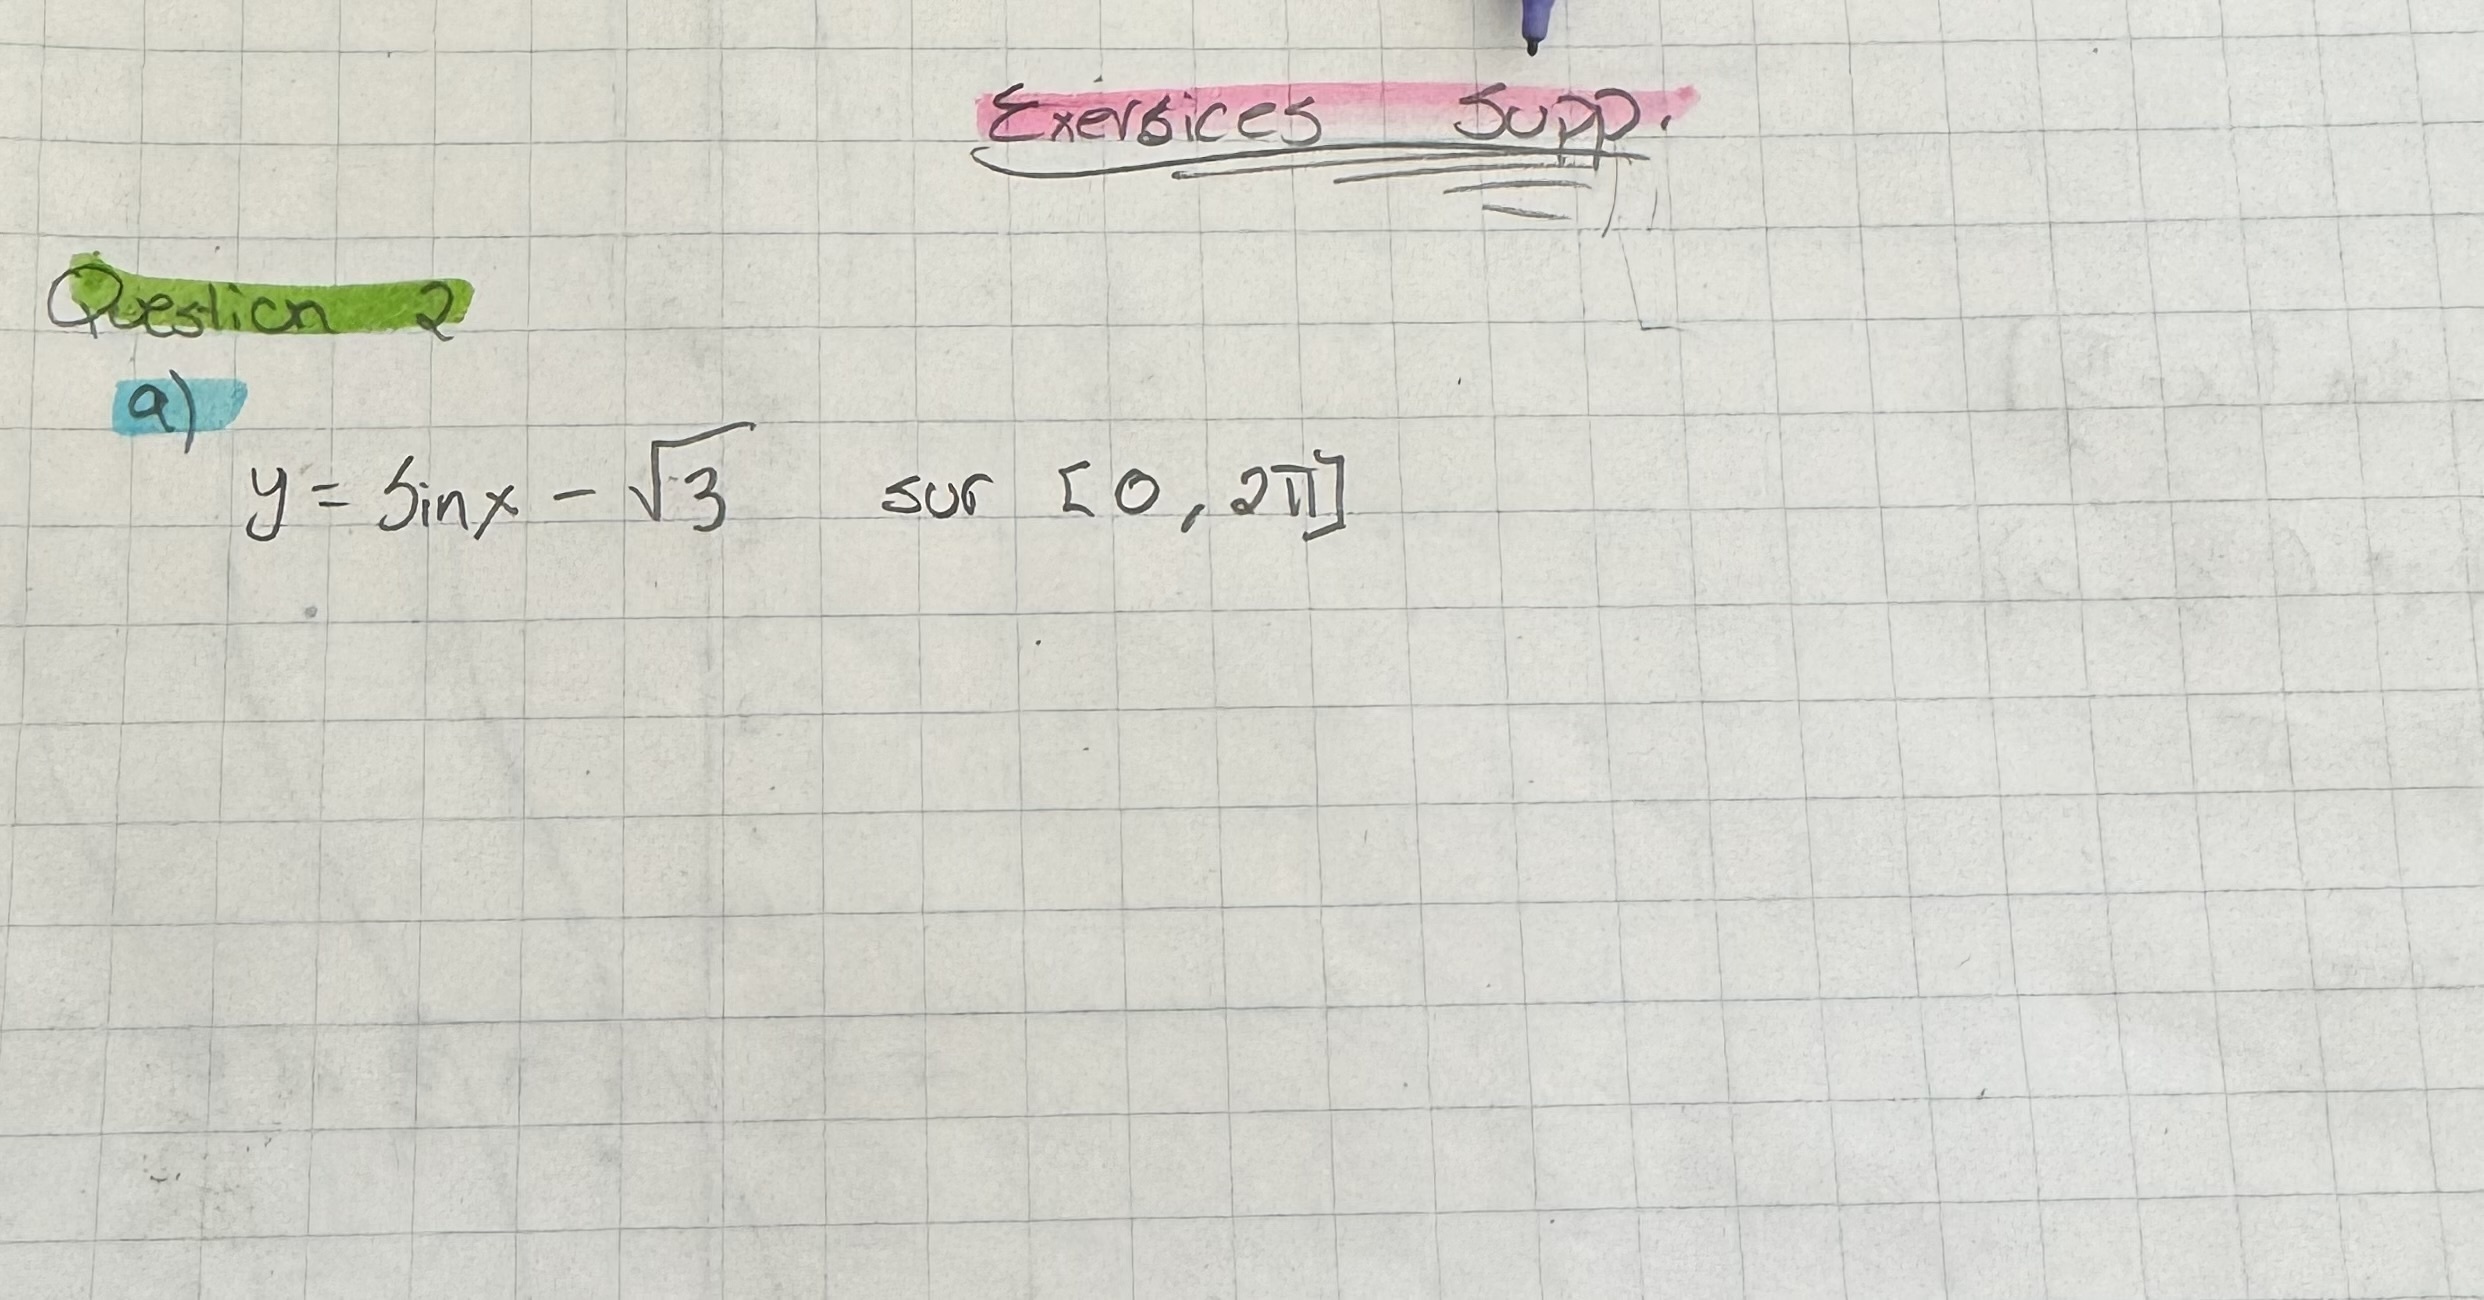 Exersices Supp.
Question 2
a)
y = sinx - √3 sur [0, 2π]